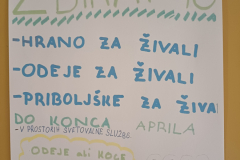 ZBIRAMO
-HRANO ZA ŽIVALI
-ODEJE ZA ŽIVALI
-PRIBOLJŠKE ZA ŽIVA
DO KONCA APRILA
-V PROSTORIH SVETOVALNE SLUŽBE
ODEJE ali KOCE